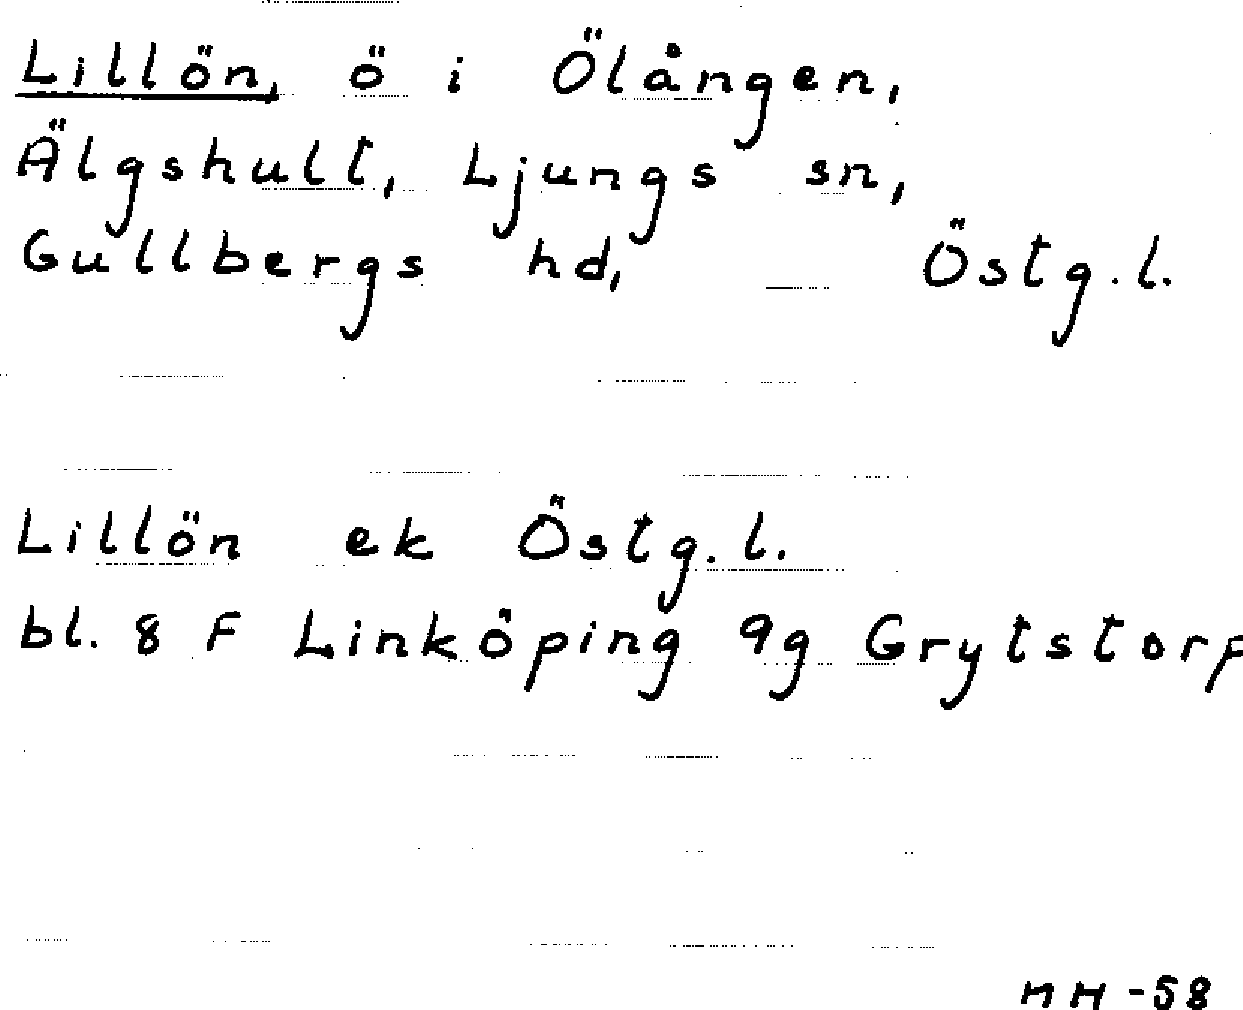 Lillön, ö i Ölången,
Älgshult, Ljungs sn,
Gullbergs hd, Östg.l.
Lillön ek Östg.l.
bl. 8 F Linköping 9g Grytstorp
MH-58